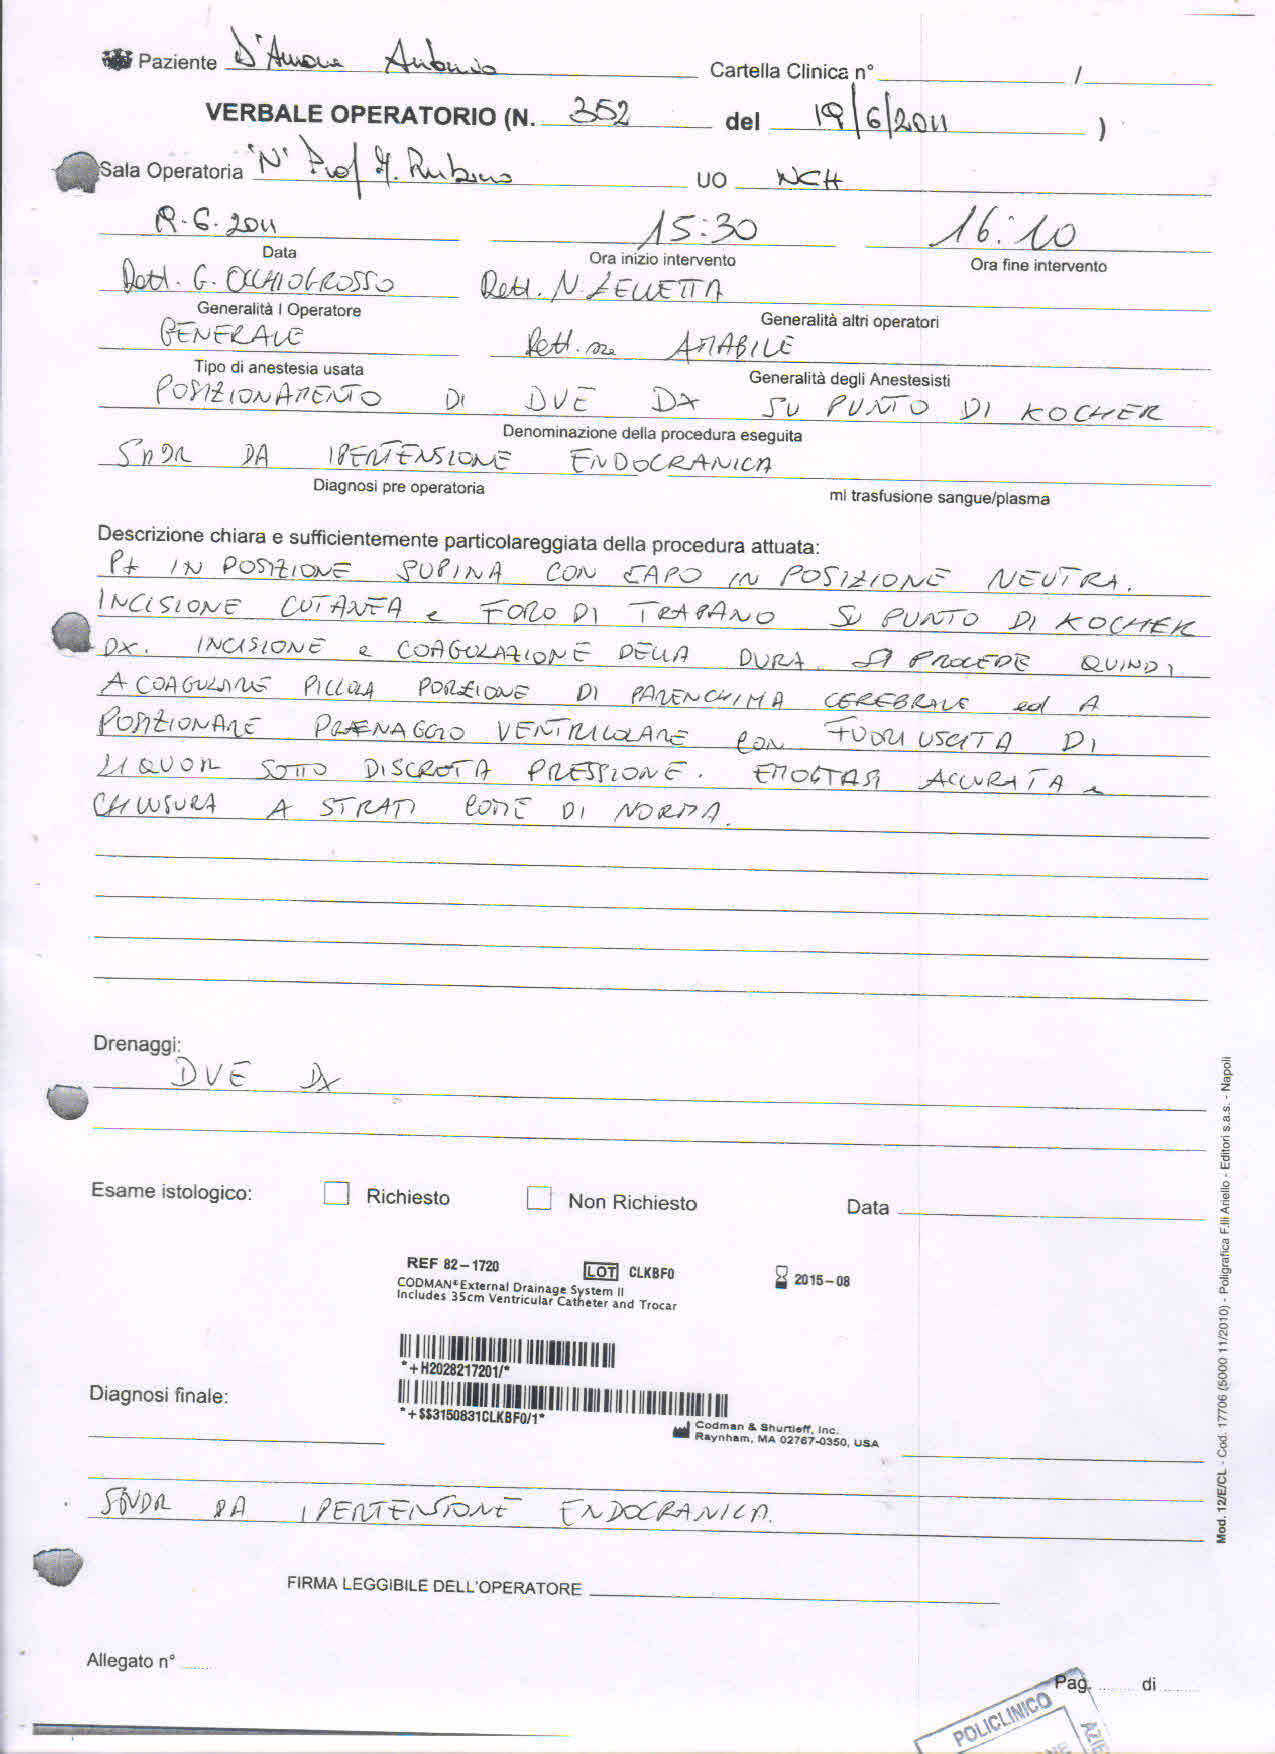 Paziente D'Amore Antonio Cartella Clinica n° /
VERBALE OPERATORIO (N. 352 del 19/6/2011 )
Sala Operatoria "N" Prof. Rubino UO NCH
19.6.2011 15:30 16:10
Data Ora inizio intervento Ora fine intervento
Dott. G. OCCHIOGROSSO Dott. N. ZELLETTA
Generalità I Operatore Generalità altri operatori
GENERALE Dott.ssa AMABILE
Tipo di anestesia usata Generalità degli Anestesisti
POSIZIONAMENTO DI DVE DX SU PUNTO DI KOCHER
Denominazione della procedura eseguita
SNDR DA IPERTENSIONE ENDOCRANICA
Diagnosi pre operatoria ml trasfusione sangue/plasma
Descrizione chiara e sufficientemente particolareggiata della procedura attuata:
Pt IN POSIZIONE SUPINA CON CAPO IN POSIZIONE NEUTRA.
INCISIONE CUTANEA e FORO DI TRAPANO SU PUNTO DI KOCHER
DX. INCISIONE e COAGULAZIONE DELLA DURA. SI PROCEDE QUINDI
A COAGULARE PICCOLA PORZIONE DI PARENCHIMA CEREBRALE ed A
POSIZIONARE DRENAGGIO VENTRICOLARE CON FUORIUSCITA DI
LIQUOR SOTTO DISCRETA PRESSIONE. EMOSTASI ACCURATA e
CHIUSURA A STRATI COME DI NORMA.
Drenaggi:
DVE DX
Esame istologico: Richiesto Non Richiesto Data
REF 82-1720 LOT CLKBF0 2015-08
CODMAN® External Drainage System II
Includes 35cm Ventricular Catheter and Trocar
*+H2028217201/*
Diagnosi finale:
*+$$3150831CLKBF0/1*
Codman & Shurtleff, Inc.
Raynham, MA 02767-0350, USA
SNDR DA IPERTENSIONE ENDOCRANICA.
FIRMA LEGGIBILE DELL'OPERATORE
Allegato n° ......
Pag. ........ di ........
POLICLINICO
Mod. 12/E/CL - Cod. 17706 (5000 11/2010) - Poligrafica F.lli Ariello - Editori s.a.s. - Napoli